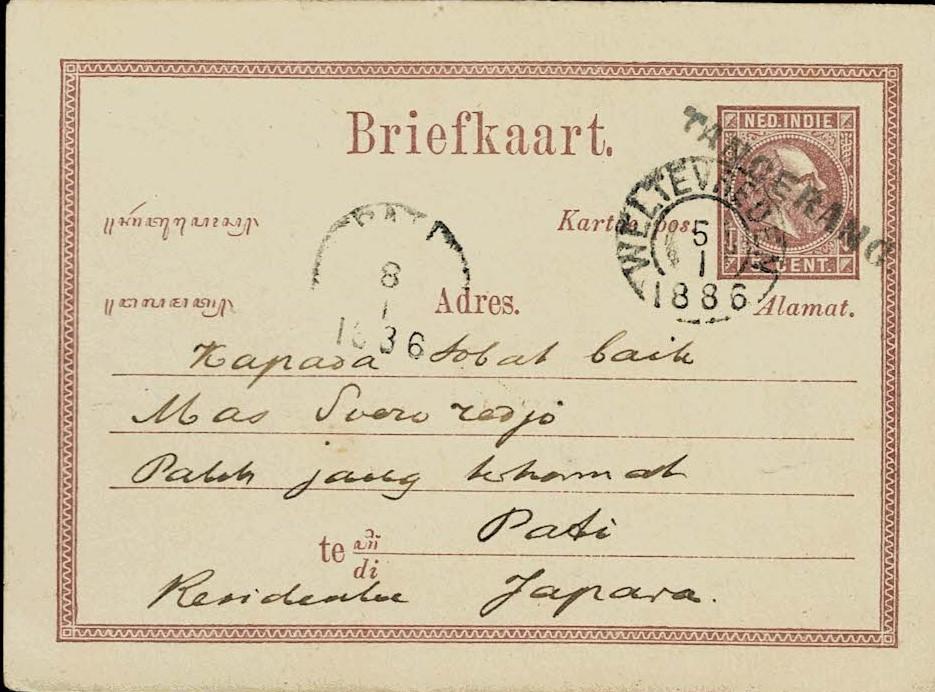 Briefkaart.
NED. INDIE
CENT.
TANGERANG
WELTEVREDEN
5
1
1886
PATI
8
1
Kartoe pos.
Adres.
Alamat.
Kapada Sobat baik
Mas Soero redjo
Patih jang terhormat
Pati
te
di
Residentie Japara.